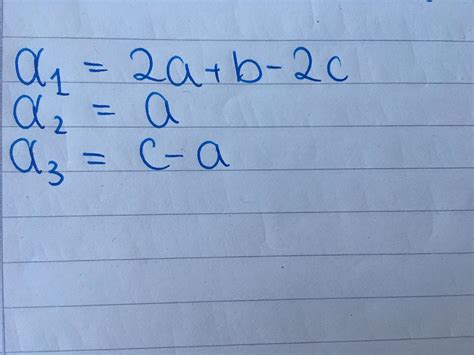 a₁ = 2a+b-2c
a₂ = a
a₃ = c-a